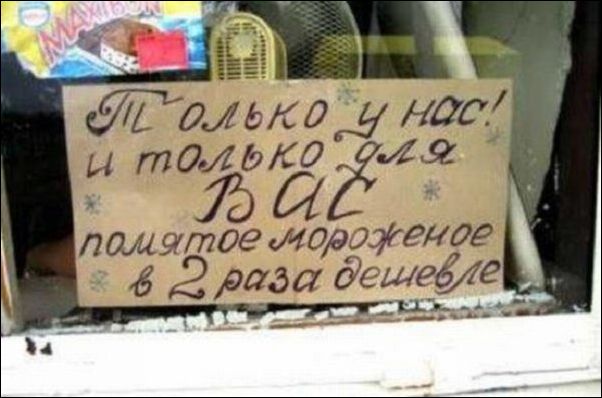 MAXIBON
Только у нас!
и только для
ВАС
помятое мороженое
в 2 раза дешевле